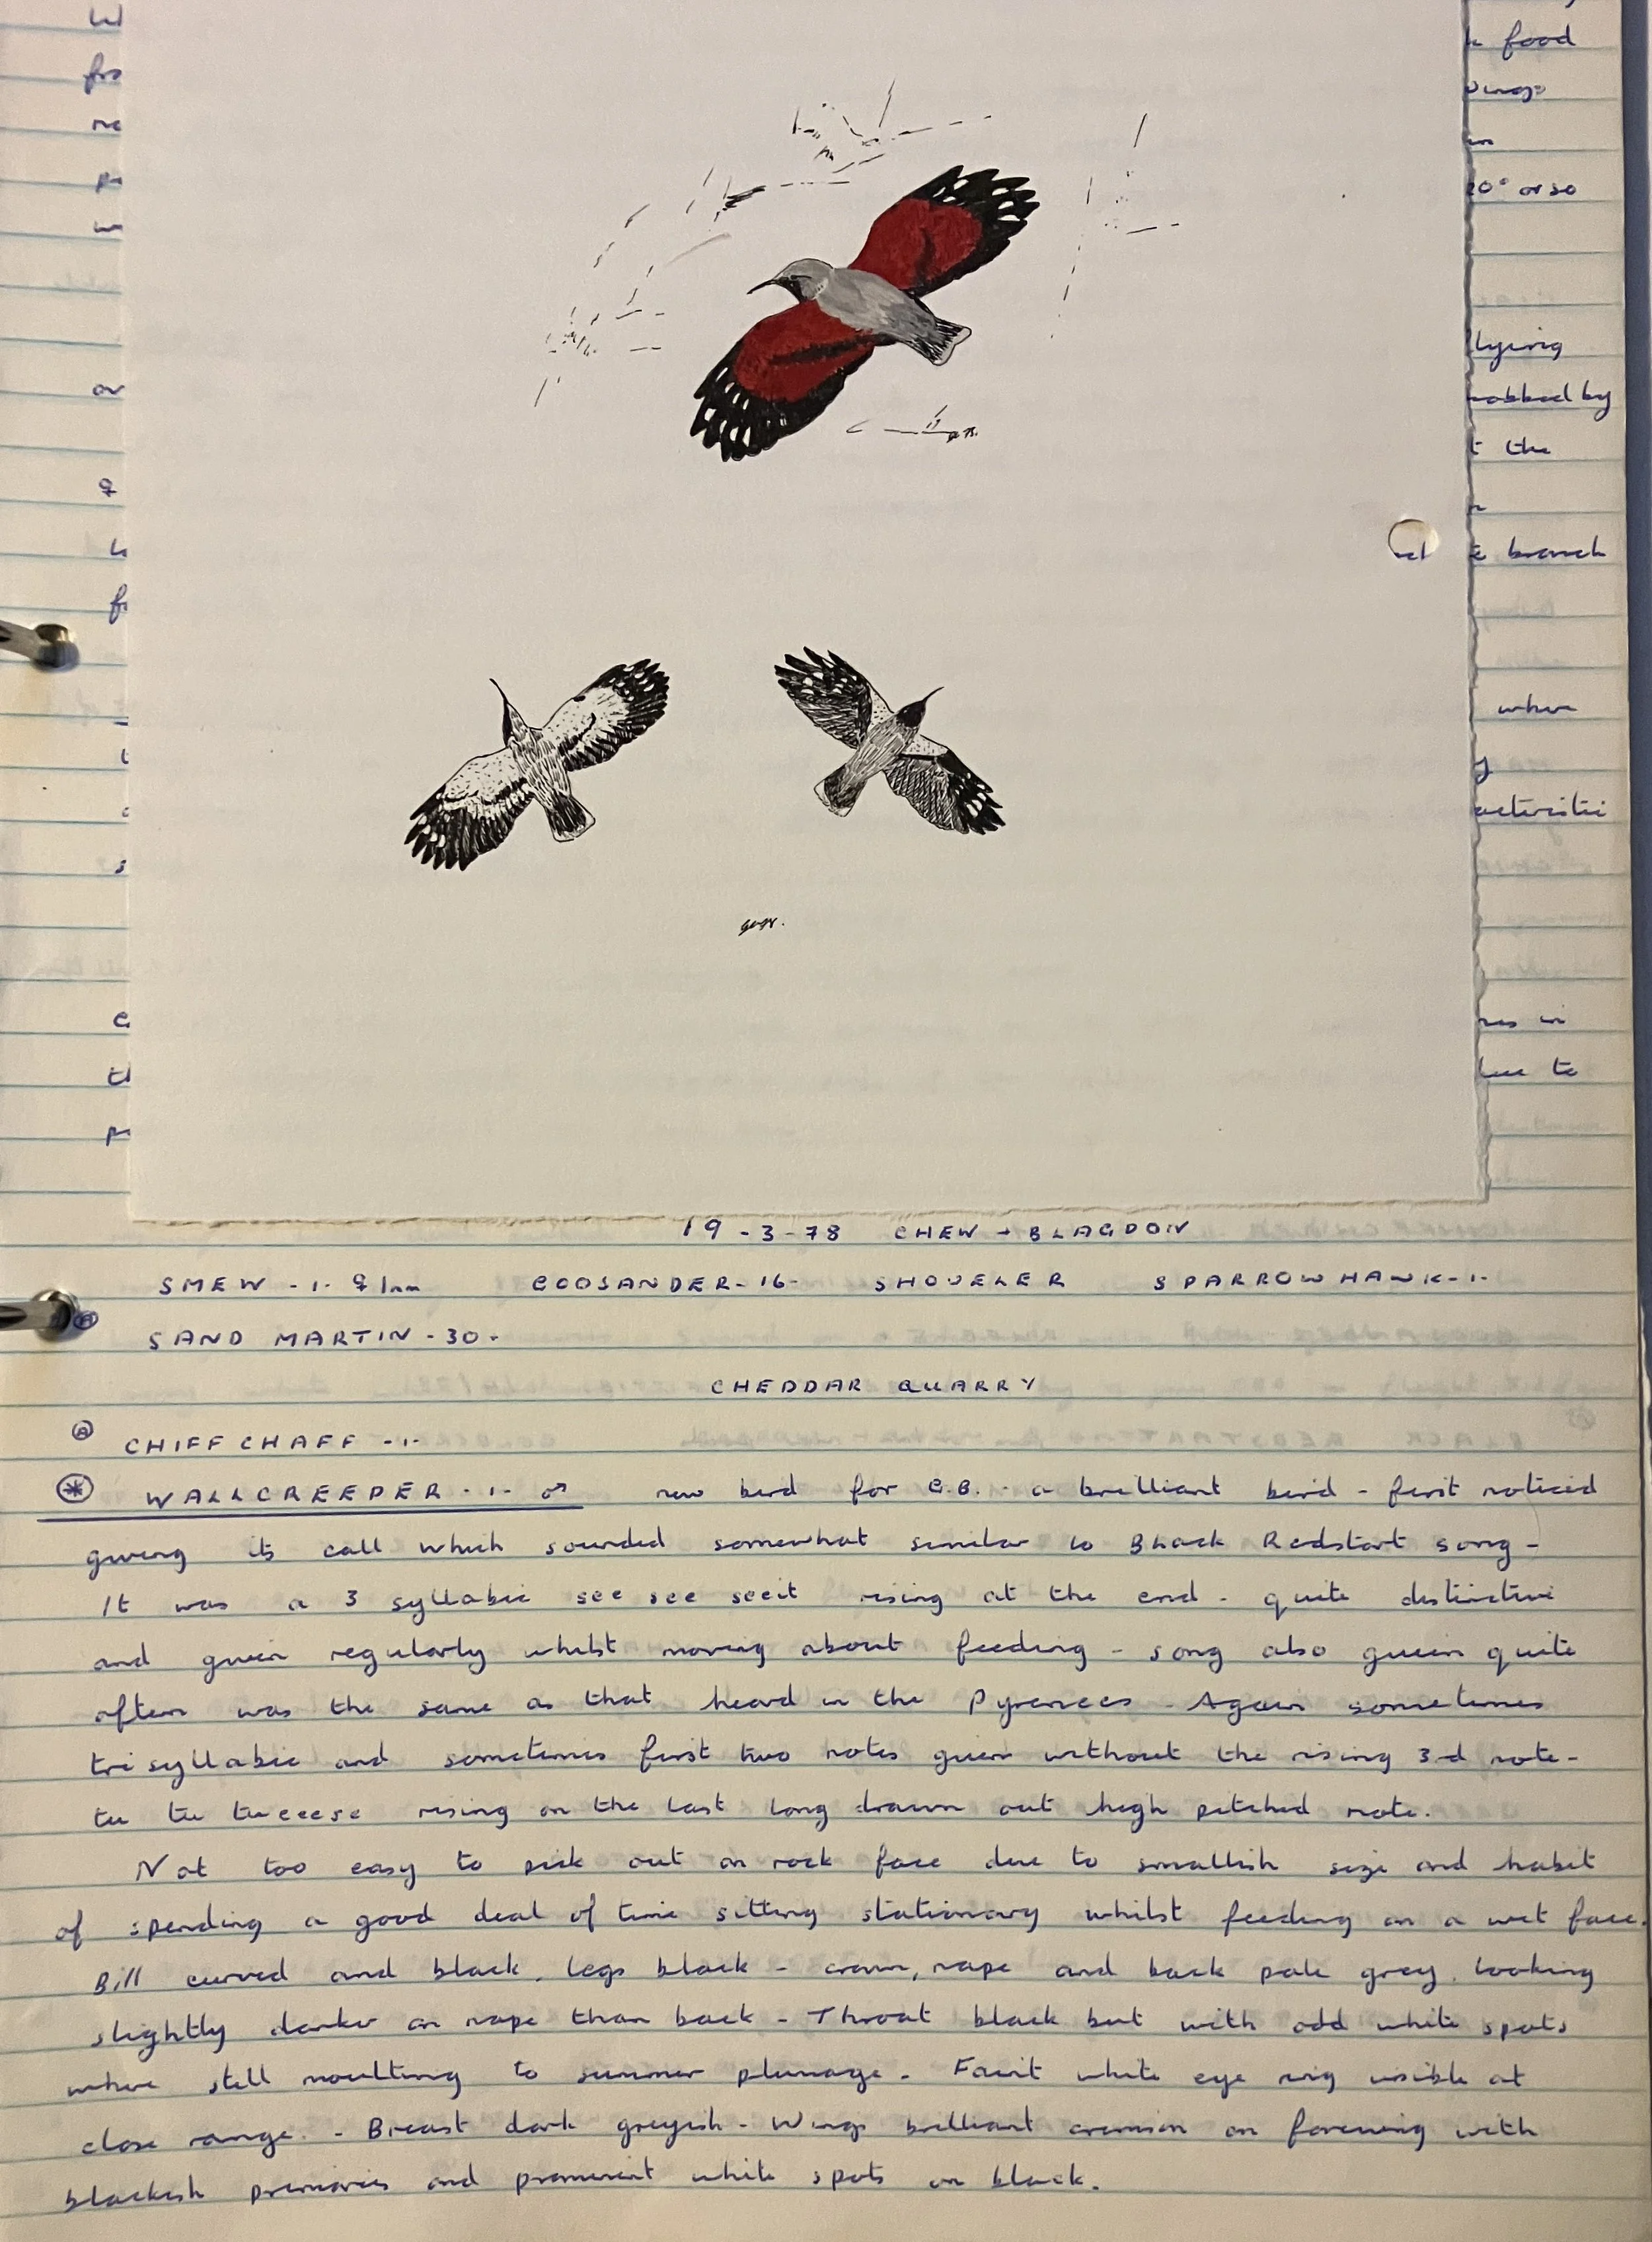 food
or so
lying
mobbed by
the
branch
when
in
to
19-3-78 CHEW + BLAGDON
SMEW -1- ♀ Imm GOOSANDER-16- SHOVELER SPARROWHAWK-1-
SAND MARTIN -30-
CHEDDAR QUARRY
CHIFFCHAFF -1-
WALLCREEPER -1- ♂ new bird for G.B. - a brilliant bird - first noticed
giving its call which sounded somewhat similar to Black Redstart song -
It was a 3 syllabic see see seeit rising at the end - quite distinctive
and given regularly whilst moving about feeding - song also given quite
often was the same as that heard in the Pyrenees - Again sometimes
trisyllabic and sometimes first two notes given without the rising 3rd note -
tu tu tueeese rising on the last long drawn out high pitched note.
Not too easy to pick out on rock face due to smallish size and habit
of spending a good deal of time sitting stationary whilst feeding on a wet face.
Bill curved and black, legs black - crown, nape and back pale grey, looking
slightly darker on nape than back - Throat black but with odd white spots
where still moulting to summer plumage. Faint white eye ring visible at
close range. - Breast dark greyish - Wings brilliant crimson on forewing with
blackish primaries and prominent white spots on black.